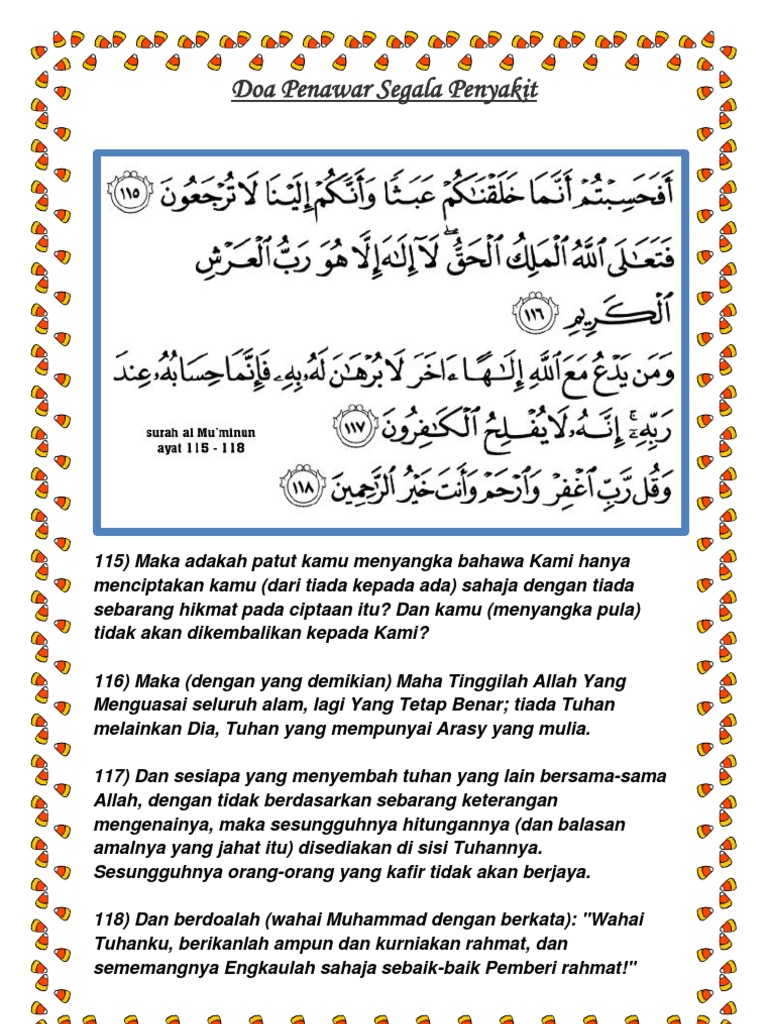 Doa Penawar Segala Penyakit
أَفَحَسِبْتُمْ أَنَّمَا خَلَقْنَٰكُمْ عَبَثًا وَأَنَّكُمْ إِلَيْنَا لَا تُرْجَعُونَ ١١٥
فَتَعَٰلَى ٱللَّهُ ٱلْمَلِكُ ٱلْحَقُّ ۖ لَآ إِلَٰهَ إِلَّا هُوَ رَبُّ ٱلْعَرْشِ
ٱلْكَرِيمِ ١١٦
وَمَن يَدْعُ مَعَ ٱللَّهِ إِلَٰهًا ءَاخَرَ لَا بُرْهَٰنَ لَهُۥ بِهِۦ فَإِنَّمَا حِسَابُهُۥ عِندَ
رَبِّهِۦٓ ۚ إِنَّهُۥ لَا يُفْلِحُ ٱلْكَٰفِرُونَ ١١٧
surah al Mu'minun
ayat 115 - 118
وَقُل رَّبِّ ٱغْفِرْ وَٱرْحَمْ وَأَنتَ خَيْرُ ٱلرَّٰحِمِينَ ١١٨
115) Maka adakah patut kamu menyangka bahawa Kami hanya
menciptakan kamu (dari tiada kepada ada) sahaja dengan tiada
sebarang hikmat pada ciptaan itu? Dan kamu (menyangka pula)
tidak akan dikembalikan kepada Kami?
116) Maka (dengan yang demikian) Maha Tinggilah Allah Yang
Menguasai seluruh alam, lagi Yang Tetap Benar; tiada Tuhan
melainkan Dia, Tuhan yang mempunyai Arasy yang mulia.
117) Dan sesiapa yang menyembah tuhan yang lain bersama-sama
Allah, dengan tidak berdasarkan sebarang keterangan
mengenainya, maka sesungguhnya hitungannya (dan balasan
amalnya yang jahat itu) disediakan di sisi Tuhannya.
Sesungguhnya orang-orang yang kafir tidak akan berjaya.
118) Dan berdoalah (wahai Muhammad dengan berkata): "Wahai
Tuhanku, berikanlah ampun dan kurniakan rahmat, dan
sememangnya Engkaulah sahaja sebaik-baik Pemberi rahmat!"